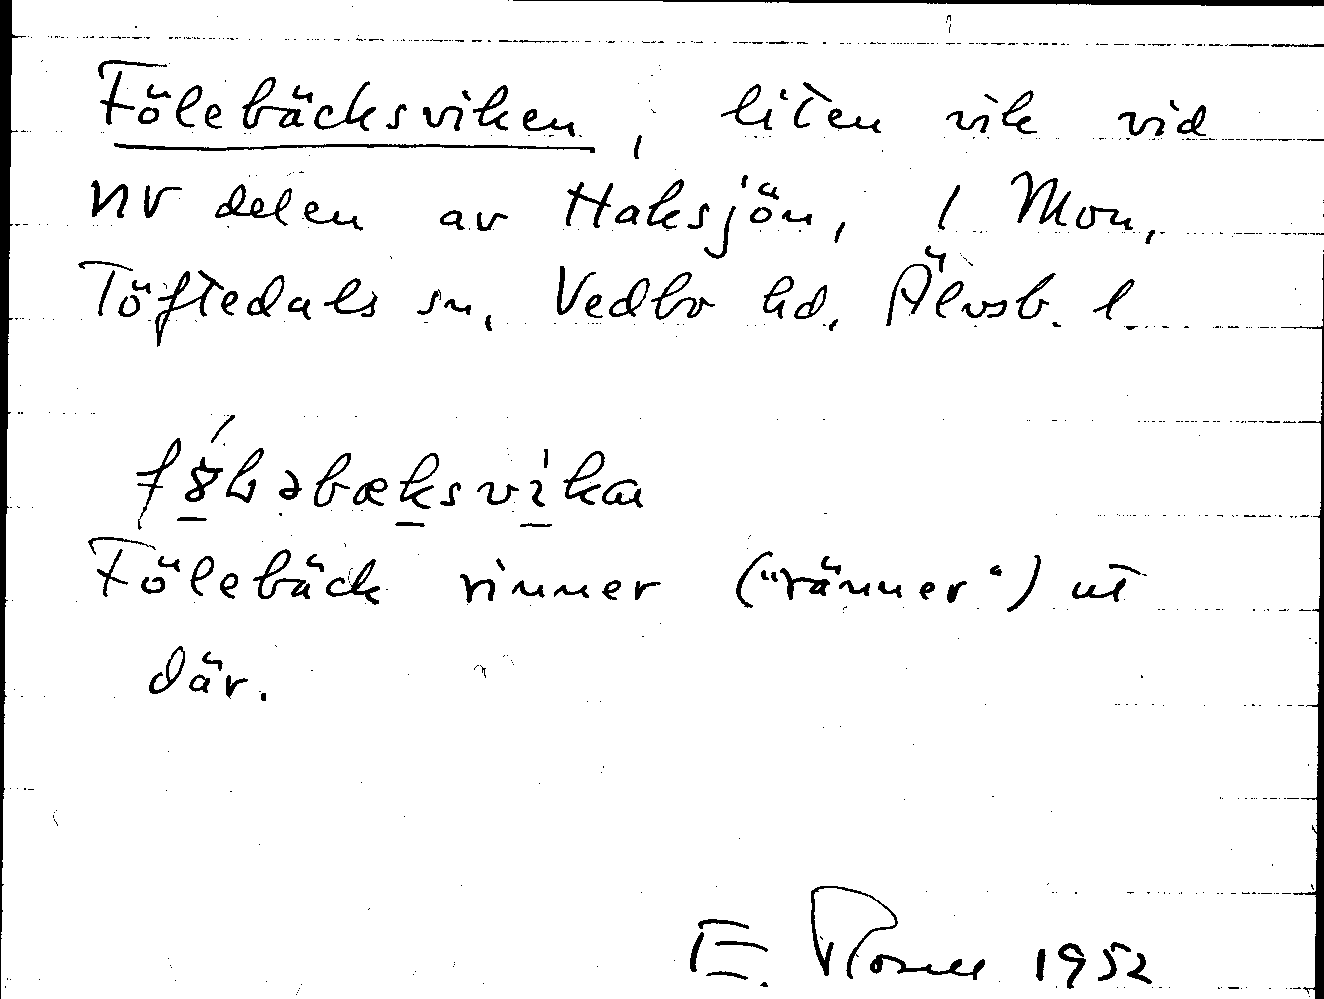 Fölebäcksviken, liten vik vid
NV delen av Haksjön, 1 Mon,
Töftedals sn, Vedbo hd, Älvsb. l.
Fölebäck rinner ("ränner") ut
där.
E. Rosell 1952